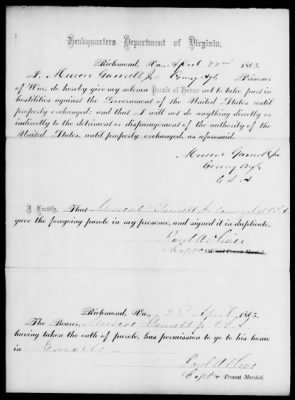 Headquarters Department of Virginia,
Richmond, Va., April 22nd 1865.
I, Muscoe Garnett Jr Prisoner
of War, do hereby give my solemn Parole of Honor not to take part in
hostilities against the Government of the United States until
properly exchanged; and that I will not do anything directly or
indirectly to the detriment or disparagement of the authority of
the United States, until properly exchanged, as aforesaid.
Muscoe Garnett Jr
C. S. A
I Certify, That Muscoe Garnett Jr C S A
gave the foregoing parole in my presence, and signed it in duplicate.
Capt & Provost Marshal.
Richmond, Va., 22d April, 1865.
The Bearer, Muscoe Garnett Jr C. S. A
having taken the oath of parole, has permission to go to his home
in
Capt & Provost Marshal.